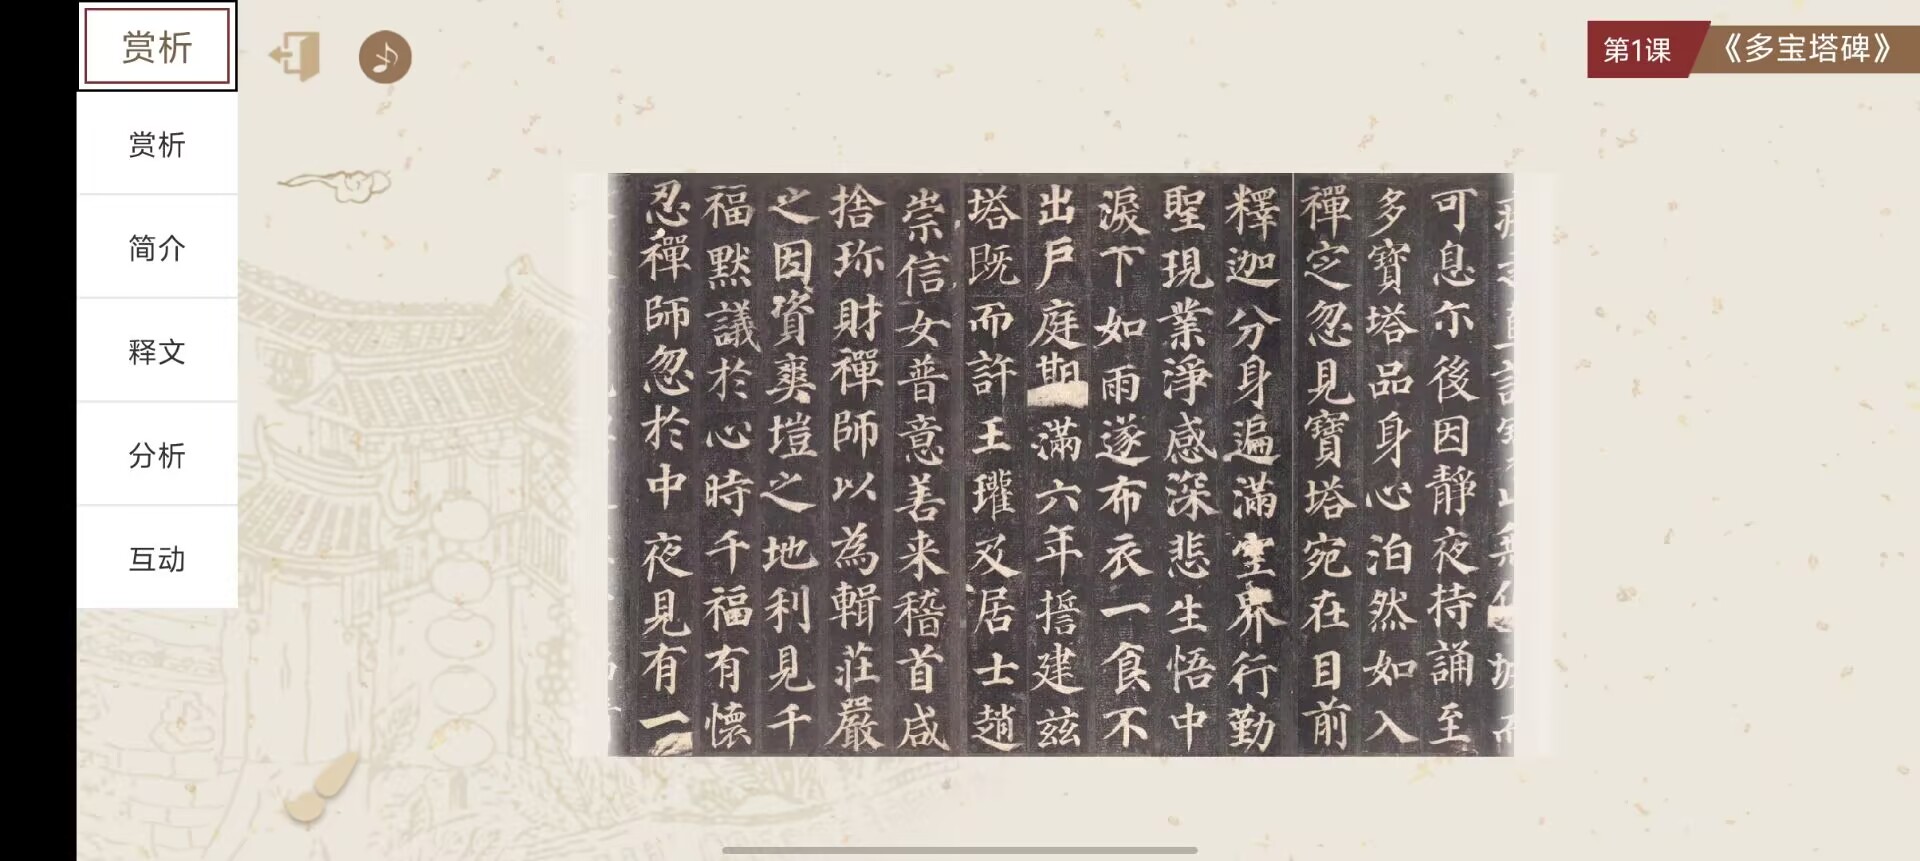 赏析
赏析
简介
释文
分析
互动
第1课
《多宝塔碑》
可息尒後因靜夜持誦至
多寶塔品身心泊然如入
禪定忽見寶塔宛在目前
釋迦分身遍滿空界行勤
聖現業淨感深悲生悟中
淚下如雨遂布衣一食不
出戶庭期滿六年誓建茲
塔既而許王瓘及居士趙
崇信女普意善来稽首咸
捨珎財禪師以為輯莊嚴
之因資爽塏之地利見千
福默議於心時千福有懷
忍禪師忽於中夜見有一